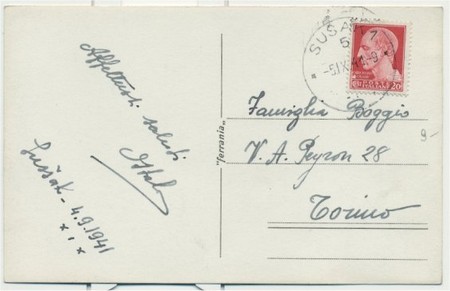 Affettuosi saluti
Sušak - 4.9.1941
ferrania
SUSA
POSTE ITALIANE
20
Famiglia Boggio
V. A. Peyron 28
Torino
9-